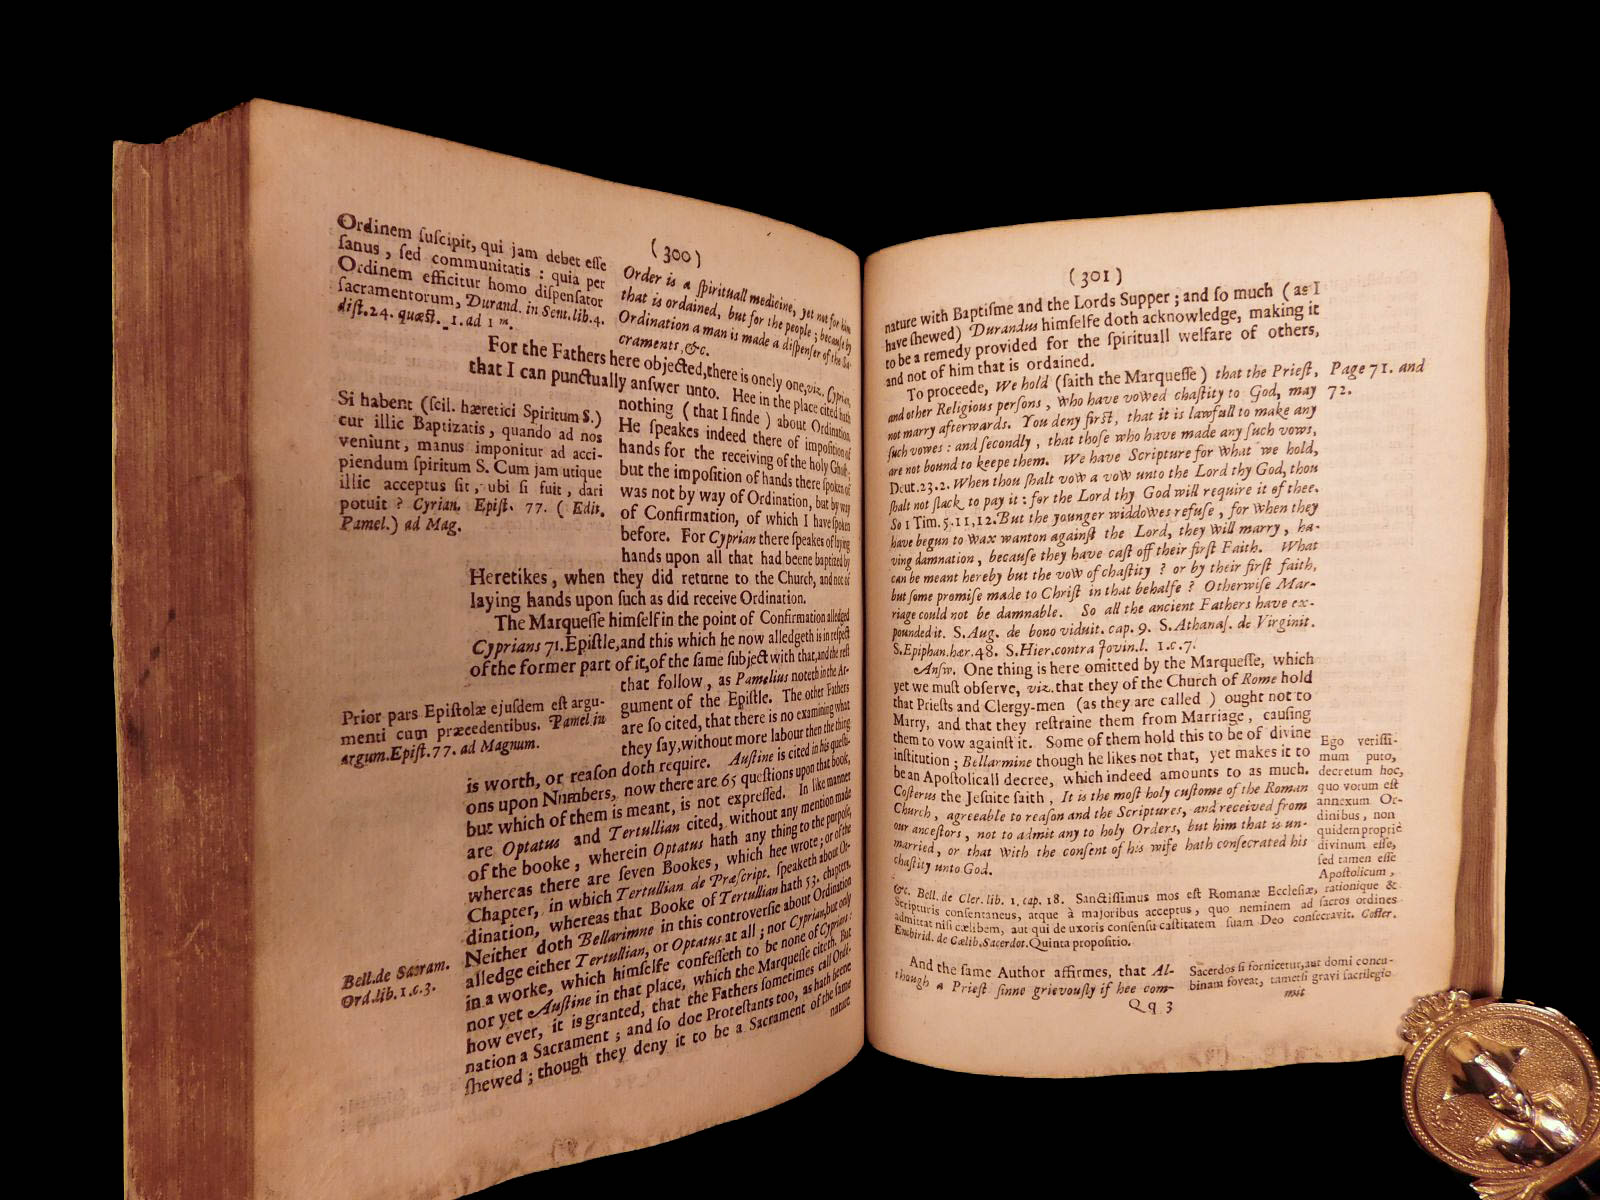 (300)
Ordinem ſuſcipit, qui jam debet eſſe
ſanus, ſed communitatis: quia per
Ordinem efficitur homo diſpenſator
ſacramentorum, Durand. in Sent. lib. 4.
diſt. 24. quæſt. 1. ad 1 m.
Order is a ſpirituall medicine, yet not for him
that is ordained, but for the people; becauſe by
Ordination a man is made a diſpenſer of the Sa-
craments, &c.
For the Fathers here objected, there is onely one, viz. Cyprian,
that I can punctually anſwer unto. Hee in the place cited hath
nothing (that I finde) about Ordination.
He ſpeakes indeed there of impoſition of
hands for the receiving of the holy Ghoſt;
but the impoſition of hands there ſpoken of
was not by way of Ordination, but by way
of Confirmation, of which I have ſpoken
before. For Cyprian there ſpeakes of laying
hands upon all that had beene baptized by
Heretikes, when they did returne to the Church, and not of
laying hands upon ſuch as did receive Ordination.
Si habent (ſcil. hæretici Spiritum S.)
cur illic Baptizatis, quando ad nos
veniunt, manus imponitur ad acci-
piendum ſpiritum S. Cum jam utique
illic acceptus ſit, ubi ſi fuit, dari
potuit? Cyrian. Epiſt. 77. (Edit.
Pamel.) ad Mag.
The Marqueſſe himſelf in the point of Confirmation alledged
Cyprians 71. Epiſtle, and this which he now alledgeth is in reſpect
of the former part of it, of the ſame ſubject with that, and the reſt
that follow, as Pamelius noteth in the Ar-
gument of the Epiſtle. The other Fathers
are ſo cited, that there is no examining what
they ſay, without more labour then the thing
is worth, or reaſon doth require. Auſtine is cited in his queſti-
ons upon Numbers, now there are 65 queſtions upon that book,
but which of them is meant, is not expreſſed. In like manner
are Optatus and Tertullian cited, without any mention made
of the booke, wherein Optatus hath any thing to the purpoſe,
whereas there are ſeven Bookes, which hee wrote; or of the
Chapter, in which Tertullian de Præſcript. ſpeaketh about Or-
dination, whereas that Booke of Tertullian hath 53. chapters.
Neither doth Bellarimne in this controverſie about Ordination
alledge either Tertullian, or Optatus at all; nor Cyprian, but only
in a worke, which himſelfe confeſſeth to be none of Cyprians:
nor yet Auſtine in that place, which the Marqueſſe citeth. But
how ever, it is granted, that the Fathers ſometimes call Ordi-
nation a Sacrament; and ſo doe Proteſtants too, as hath beene
ſhewed; though they deny it to be a Sacrament of the ſame
nature
Prior pars Epiſtolæ ejuſdem eſt argu-
menti cum præcedentibus. Pamel. in
argum. Epiſt. 77. ad Magnum.
Bell. de Sacram.
Ord. lib. 1. c. 3.
(301)
nature with Baptiſme and the Lords Supper; and ſo much (as I
have ſhewed) Durandus himſelfe doth acknowledge, making it
to be a remedy provided for the ſpirituall welfare of others,
and not of him that is ordained.
To proceede, We hold (ſaith the Marqueſſe) that the Prieſt,
and other Religious perſons, who have vowed chaſtity to God, may
not marry afterwards. You deny firſt, that it is lawfull to make any
ſuch vowes: and ſecondly, that thoſe who have made any ſuch vows,
are not bound to keepe them. We have Scripture for what we hold,
Deut. 23. 2. When thou ſhalt vow a vow unto the Lord thy God, thou
ſhalt not ſlack to pay it: for the Lord thy God will require it of thee.
So 1 Tim. 5. 11, 12. But the younger widdowes refuſe, for when they
have begun to wax wanton againſt the Lord, they will marry, ha-
ving damnation, becauſe they have caſt off their firſt Faith. What
can be meant hereby but the vow of chaſtity? or by their firſt faith,
but ſome promiſe made to Chriſt in that behalfe? Otherwiſe Mar-
riage could not be damnable. So all the ancient Fathers have ex-
pounded it. S. Aug. de bono viduit. cap. 9. S. Athanaſ. de Virginit.
S. Epiphan. hær. 48. S. Hier. contra Jovin. l. 1. c. 7.
Page 71. and
72.
Anſw. One thing is here omitted by the Marqueſſe, which
yet we muſt obſerve, viz. that they of the Church of Rome hold
that Prieſts and Clergy-men (as they are called) ought not to
Marry, and that they reſtraine them from Marriage, cauſing
them to vow againſt it. Some of them hold this to be of divine
inſtitution; Bellarmine though he likes not that, yet makes it to
be an Apoſtolicall decree, which indeed amounts to as much.
Coſterus the Jeſuite ſaith, It is the moſt holy cuſtome of the Roman
Church, agreeable to reaſon and the Scriptures, and received from
our anceſtors, not to admit any to holy Orders, but him that is un-
married, or that with the conſent of his wife hath conſecrated his
chaſtity unto God.
Ego veriſſi-
mum puto,
decretum hoc,
quo votum eſt
annexum Or-
dinibus, non
quidem propriè
divinum eſſe,
ſed tamen eſſe
Apoſtolicum,
&c. Bell. de Cler. lib. 1. cap. 18. Sanctiſſimus mos eſt Romanæ Eccleſiæ, rationique &
Scripturis conſentaneus, atque à majoribus acceptus, quo neminem ad ſacros ordines
admittat niſi cælibem, aut qui de uxoris conſenſu caſtitatem ſuam Deo conſecravit. Coſter.
Enchirid. de Cælib. Sacerdot. Quinta propoſitio.
And the ſame Author affirmes, that Al-
though a Prieſt ſinne grievouſly if hee com-
Sacerdos ſi fornicetur, aut domi concu-
binam foveat, tametſi gravi ſacrilegio
mit
Qq 3